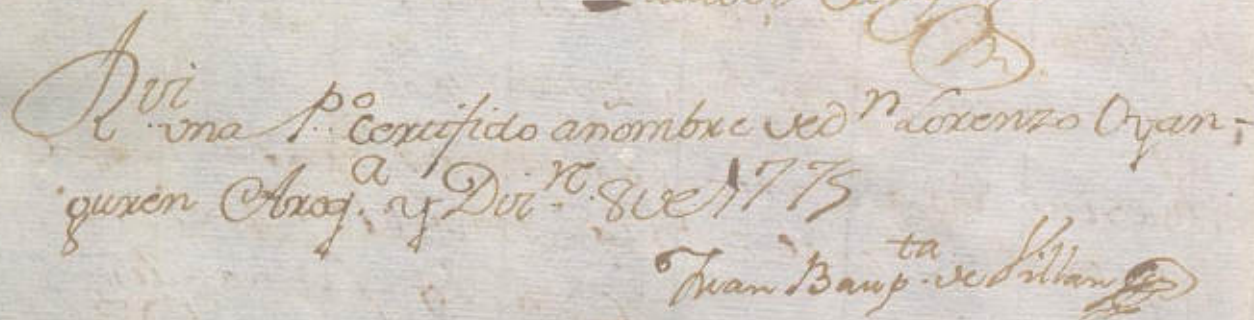 Rvi
una Pº certifido añombre ded.ⁿ Lorenzo Oyan-
guren Areq.ª y Dizi.ʳᵉ 8 de 1775
Juan Baup.ᵗᵃ de Villan